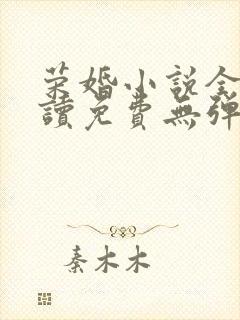 荣婚小说全
讀免費無彈
秦木木